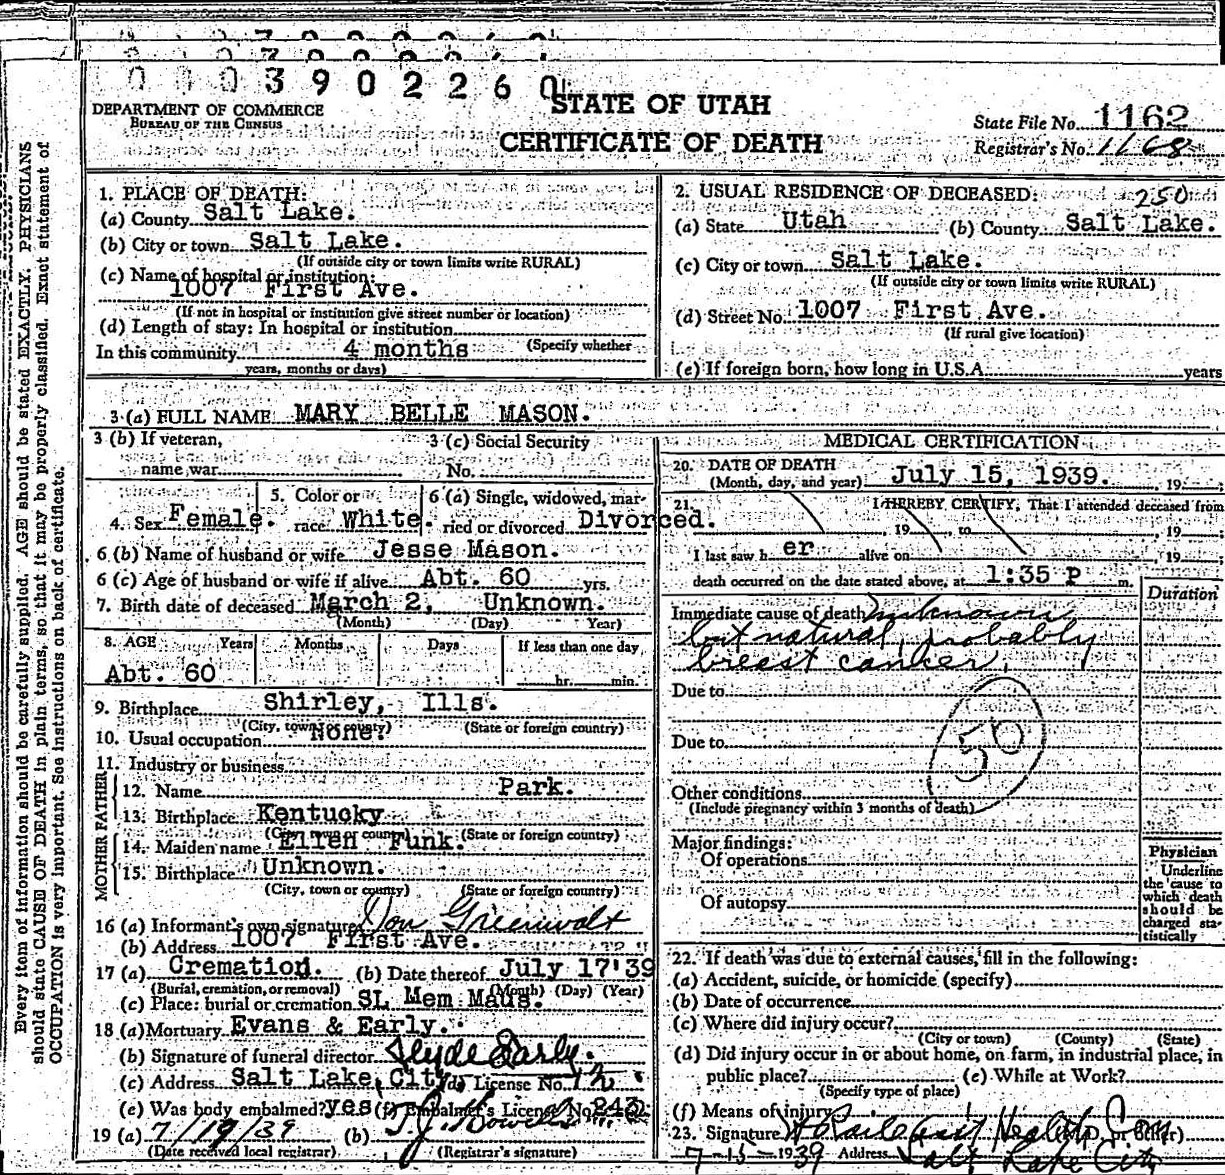 0003902260
DEPARTMENT OF COMMERCE
BUREAU OF THE CENSUS
STATE OF UTAH
CERTIFICATE OF DEATH
State File No. 1162
Registrar's No. 1168
Every item of information should be carefully supplied. AGE should be stated EXACTLY. PHYSICIANS
should state CAUSE OF DEATH in plain terms, so that it may be properly classified. Exact statement of
OCCUPATION is very important. See instructions on back of certificate.
1. PLACE OF DEATH:
(a) County Salt Lake.
(b) City or town Salt Lake.
(If outside city or town limits write RURAL)
(c) Name of hospital or institution:
1007 First Ave.
(If not in hospital or institution give street number or location)
(d) Length of stay: In hospital or institution
(Specify whether
In this community 4 months
years, months or days)
2. USUAL RESIDENCE OF DECEASED: 250
(a) State Utah (b) County Salt Lake.
(c) City or town Salt Lake.
(If outside city or town limits write RURAL)
(d) Street No. 1007 First Ave.
(If rural give location)
(e) If foreign born, how long in U.S.A. years
3 (a) FULL NAME MARY BELLE MASON.
3 (b) If veteran,
name war
3 (c) Social Security
No.
4. Sex Female. 5. Color or race White. 6 (a) Single, widowed, married or divorced Divorced.
6 (b) Name of husband or wife Jesse Mason.
6 (c) Age of husband or wife if alive Abt. 60 yrs.
7. Birth date of deceased March 2, Unknown.
(Month) (Day) Year)
8. AGE Years Months Days If less than one day
Abt. 60 hr. min.
9. Birthplace Shirley, Ills.
(City, town or county) (State or foreign country)
10. Usual occupation None.
11. Industry or business
FATHER
12. Name Park.
13. Birthplace Kentucky
(City, town or county) (State or foreign country)
MOTHER
14. Maiden name Ellen Funk.
15. Birthplace Unknown.
(City, town or county) (State or foreign country)
16 (a) Informant's own signature Don Greenwalt
(b) Address 1007 First Ave.
17 (a) Cremation. (b) Date thereof July 17'39
(Burial, cremation, or removal) (Month) (Day) (Year)
(c) Place: burial or cremation SL Mem Maus.
18 (a) Mortuary Evans & Early.
(b) Signature of funeral director Clyde Early.
(c) Address Salt Lake City (d) License No. 12
(e) Was body embalmed? yes (f) Embalmer's License No. 243
19 (a) 7/19/39 (b) T.J. Howells
(Date received local registrar) (Registrar's signature)
MEDICAL CERTIFICATION
20. DATE OF DEATH
(Month, day, and year) July 15, 1939. 19
21. I HEREBY CERTIFY, That I attended deceased from
, 19 , to , 19 ;
I last saw h er alive on , 19 ;
death occurred on the date stated above, at 1:35 P m.
Duration
Immediate cause of death unknown
but natural, probably
breest canker.
Due to
Due to
50
Other conditions
(Include pregnancy within 3 months of death)
Major findings:
Of operations
Of autopsy
Physician
Underline
the cause to
which death
should be
charged sta-
tistically
22. If death was due to external causes, fill in the following:
(a) Accident, suicide, or homicide (specify)
(b) Date of occurrence
(c) Where did injury occur?
(City or town) (County) (State)
(d) Did injury occur in or about home, on farm, in industrial place, in
public place? (e) While at Work?
(Specify type of place)
(f) Means of injury
23. Signature Health Com (M.D. or other)
7-15-1939 Address Salt Lake City